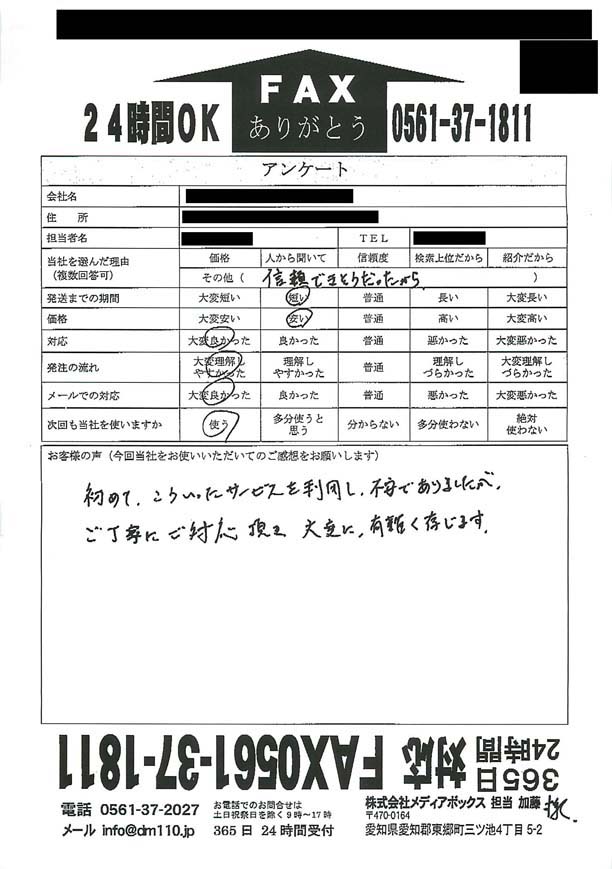 FAX
ありがとう
24時間OK
0561-37-1811
アンケート
会社名
住 所
担当者名 TEL
当社を選んだ理由（複数回答可） 価格 人から聞いて 信頼度 検索上位だから 紹介だから
その他（ 信頼できそうだったから ）
発送までの期間 大変短い 短い 普通 長い 大変長い
価格 大変安い 安い 普通 高い 大変高い
対応 大変良かった 良かった 普通 悪かった 大変悪かった
発注の流れ 大変理解しやすかった 理解しやすかった 普通 理解しづらかった 大変理解しづらかった
メールでの対応 大変良かった 良かった 普通 悪かった 大変悪かった
次回も当社を使いますか 使う 多分使うと思う 分からない 多分使わない 絶対使わない
お客様の声（今回当社をお使いいただいてのご感想をお願いします）
初めて、こういったサービスを利用し、不安でありましたが、
ご丁寧にご対応頂き 大変に、有難く存じます。
365日
24時間
対応 FAX0561-37-1811
電話 0561-37-2027
お電話でのお問合せは
土日祝祭日を除く9時～17時
株式会社メディアボックス 担当 加藤 様
〒470-0164
メール info@dm110.jp 365日 24時間受付 愛知県愛知郡東郷町三ツ池4丁目5-2